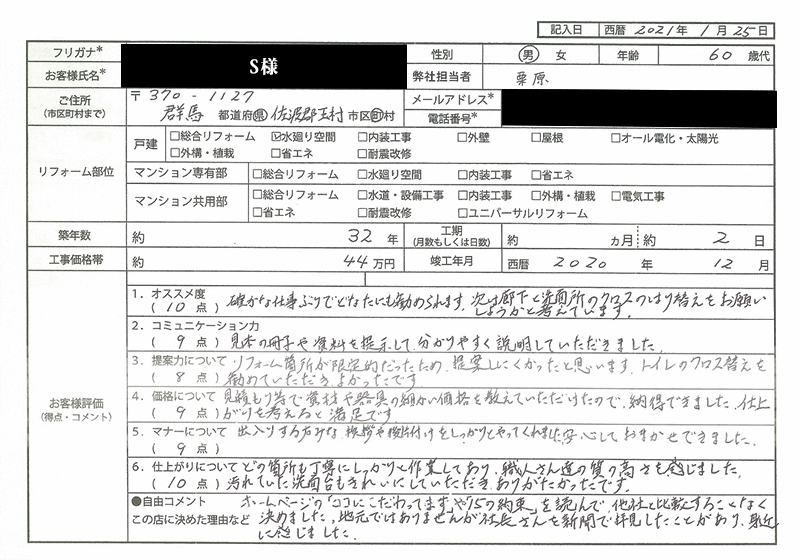 記入日 西暦 2021年 1月 25日
フリガナ* S様 性別 男 女 年齢 60 歳代
お客様氏名* 弊社担当者 栗原
ご住所 (市区町村まで) 〒370-1127 メールアドレス*
群馬 都道府県 佐波郡玉村 市区町村 電話番号*
リフォーム部位 戸建 □総合リフォーム ☑水廻り空間 □内装工事 □外壁 □屋根 □オール電化・太陽光
□外構・植栽 □省エネ □耐震改修
マンション専有部 □総合リフォーム □水廻り空間 □内装工事 □省エネ
マンション共用部 □総合リフォーム □水道・設備工事 □内装工事 □外構・植栽 □電気工事
□省エネ □耐震改修 □ユニバーサルリフォーム
築年数 約 32 年 工期 (月数もしくは日数) 約 カ月 約 2 日
工事価格帯 約 44 万円 竣工年月 西暦 2020 年 12 月
お客様評価 (得点・コメント)
1．オススメ度 確かな仕事ぶりでどなたにも勧められます。次は廊下と洗面所のクロスのはり替えをお願い
(10 点) しようかと考えています。
2．コミュニケーション力
(9 点) 見本の冊子や資料を提示して、分かりやすく説明していただきました。
3．提案力について リフォーム箇所が限定的だったため、提案しにくかったと思います。トイレのクロス替えを
(8 点) 勧めていただき、よかったです。
4．価格について 見積もり等で資材や器具の細かい価格を教えていただけたので、納得できました。仕上
(9 点) がりを考えると満足です。
5．マナーについて 出入りする度な、挨拶や後片付けをしっかりとやってくれました。安心しておまかせできました。
(9 点)
6．仕上がりについて どの箇所も丁寧にしっかりと作業してあり、職人さん達の質の高さを感じました。
(10 点) 汚れていた洗面台もきれいにしていただき、ありがたかったです。
●自由コメント ホームページの「ココにこだわってます」や「15の約束」を読んで、他社と比較することなく
この店に決めた理由など 決めました。地元ではありませんが社長さんを新聞で拝見したことがあり、身近
に感じました。